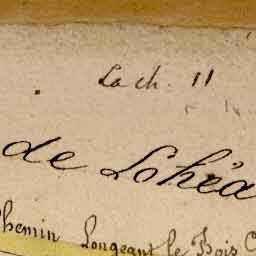 Lach. 11
de Lohéa
Chemin Longeant le Bois